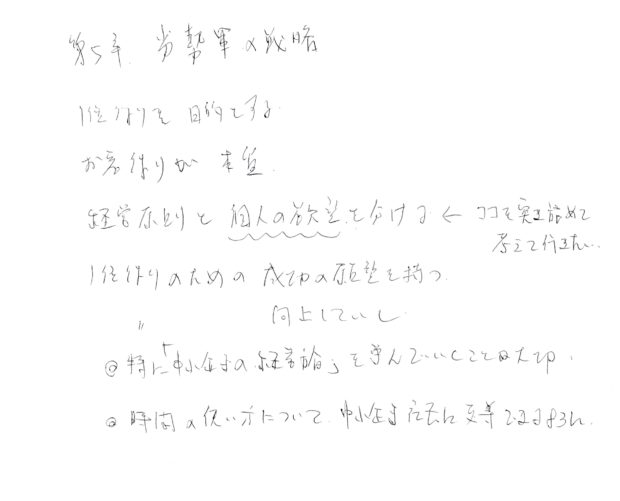 第5章 劣勢軍の戦略
1位作りを目的とする
お客作りが 本質
経営原則と個人の欲望を分ける ← ココを突き詰めて
考えて行きたい。
1位作りのための 成功の願望を持つ
〃 向上していく
◎ 特に「中小企業の経営論」を学んでいくことが大切。
◎ 時間の使い方について、中小企業